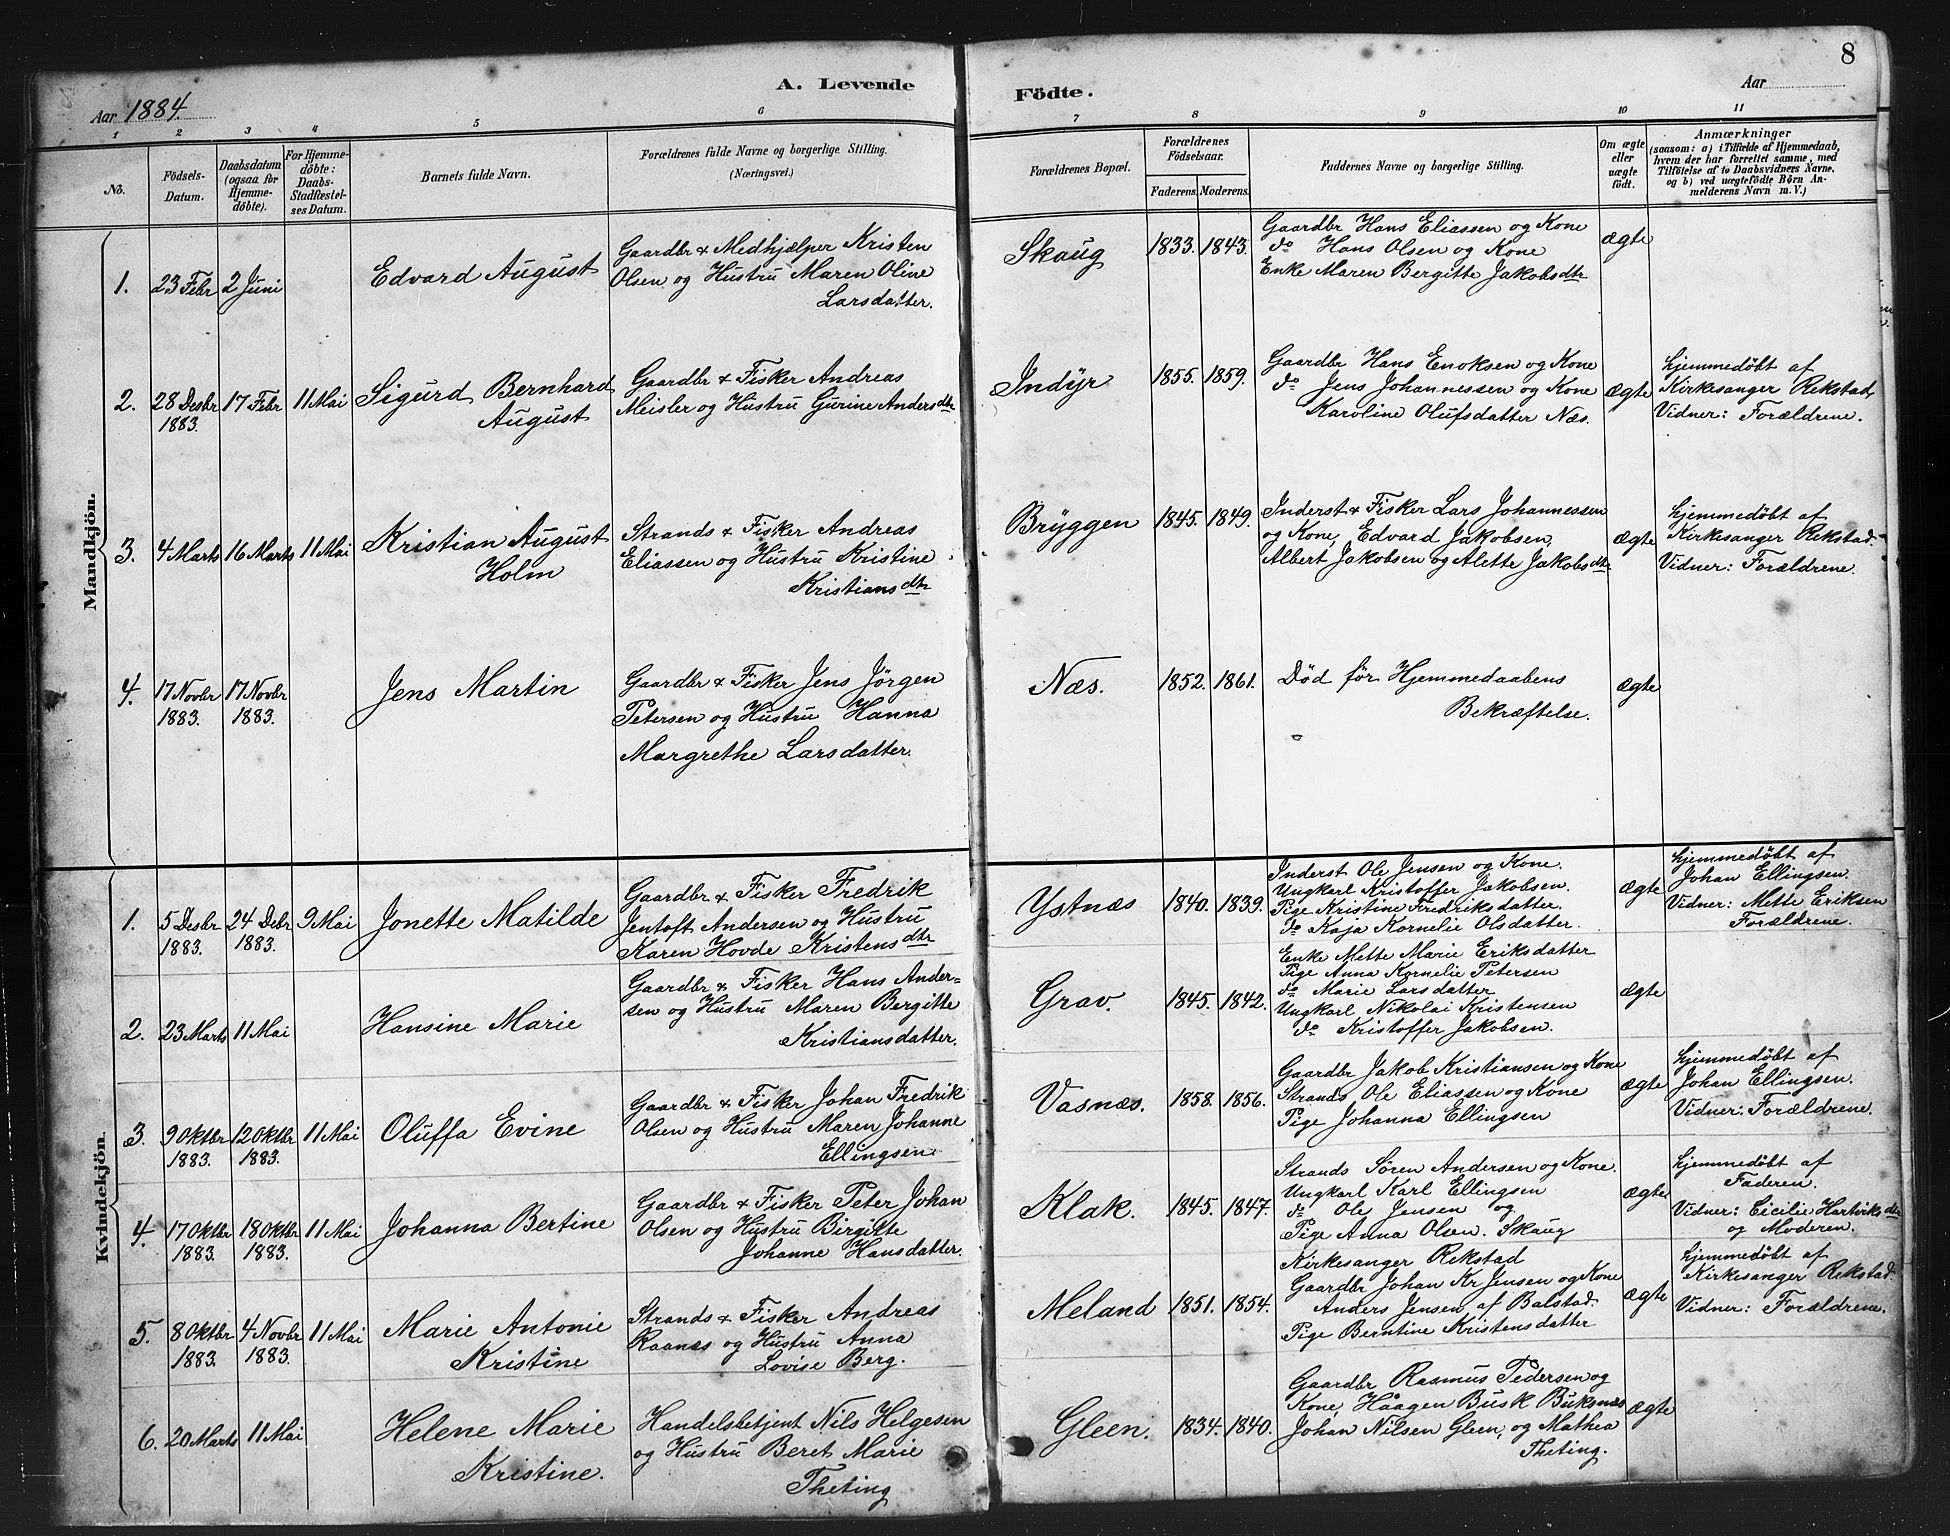 8
A. Levende
Födte.
Aar 1884.
Aar
1 2 3 4 5 6 7 8 9 10 11
No.
Födsels-
Datum.
Daabsdatum
(ogsaa for
Hjemme-
döbte).
For Hjemme-
döbte:
Daabs-
Stadfæstel-
ses Datum.
Barnets fulde Navn.
Forældrenes fulde Navne og borgerlige Stilling.
(Næringsvei.)
Forældrenes Bopæl.
Forældrenes
Födselsaar.
Faderens. Moderens.
Faddernes Navne og borgerlige Stilling.
Om ægte
eller
uægte
født.
Anmærkninger
(saasom: a) i Tilfælde af Hjemmedaab,
hvem der har forrettet samme, med
Tilföielse af to Daabsvidners Navne,
og b) ved uægtefödte Börn An-
melderens Navn m. V.)
Mandkjön.
1. 23 Febr 2 Juni
Edvard August
Gaardbr & Medhjælper Kristen
Olsen og Hustru Maren Oline
Larsdatter.
Skaug 1833. 1843.
Gaardbr Hans Eliassen og Kone
do Hans Olsen og Kone
Enke Maren Bergitte Jakobsdtr
ægte
2. 28 Desbr 17 Febr 11 Mai
1883.
Sigurd Bernhard
August
Gaardbr & Fisker Andreas
Meisler og Hustru Gurine Andersdtr
Indyr 1855. 1859.
Gaardbr Hans Enoksen og Kone
do Jens Johannessen og Kone
Karoline Olufsdatter Næs.
ægte
hjemmedøbt af
Kirkesanger Rekstad,
Vidner: Forældrene.
3. 4 Marts 16 Marts 11 Mai
Kristian August
Holm
Strands & Fisker Andreas
Eliassen og Hustru Kristine
Kristiansdtr
Bryggen 1845. 1849.
Inderst & Fisker Lars Johannessen
og Kone, Edvard Jakobsen,
Albert Jakobsen og Alette Jakobsdtr
ægte
hjemmedøbt af
Kirkesanger Rekstad.
Vidner: Forældrene.
4. 17 Novbr 17 Novbr
1883. 1883.
Jens Martin
Gaardbr & Fisker Jens Jørgen
Petersen og Hustru Hanna
Margrethe Larsdatter.
Næs. 1852. 1861.
Død før Hjemmedaabens
Bekræftelse.
ægte
Kvindekjön.
1. 5 Desbr 24 Debr 9 Mai
1883. 1883.
Jonette Matilde
Gaardbr & Fisker Fredrik
Jentoft Andersen og Hustru
Karen Hovde Kristensdtr
Ystnæs 1840. 1839.
Inderst Ole Jensen og Kone.
Ungkarl Kristoffer Jakobsen.
Pige Kristine Fredriksdatter.
do Kaja Kornelie Olsdatter.
ægte
hjemmedøbt af
Johan Ellingsen.
Vidner: Mette Eriksen
Forældrene.
2. 23 Marts 11 Mai
Hansine Marie
Gaardbr & Fisker Hans Ander=
sen og Hustru Maren Bergitte
Kristiansdatter.
Grav. 1845. 1842.
Enke Mette Marie Eriksdatter
Pige Anna Kornelie Petersen
do Marie Larsdatter
Ungkarl Nikolai Kristensen
do Kristoffer Jakobsen.
ægte
3. 9 Oktbr 12 Oktbr 11 Mai
1883. 1883.
Oluffa Evine
Gaardbr & Fisker Johan Fredrik
Olsen og Hustru Maren Johanne
Ellingsen.
Vasnæs. 1858. 1856.
Gaardbr Jakob Kristiansen og Kone
Strands Ole Eliassen og Kone
Pige Johanna Ellingsen
ægte
hjemmedøbt af
Johan Ellingsen.
Vidner: Forældrene.
4. 17 Oktbr 18 Oktbr 11 Mai
1883. 1883.
Johanna Bertine
Gaardbr & Fisker Peter Johan
Olsen og Hustru Birgitte
Johanne Hansdatter.
Klak. 1845. 1847.
Strands Søren Andersen og Kone.
Ungkarl Karl Ellingsen
do Ole Jensen og
Pige Anna Olsen. Skaug
ægte
hjemmedøbt af
Faderen.
Vidner: Cicilie Hartviksdtr
og Moderen.
5. 8 Oktbr 4 Novbr 11 Mai
1883. 1883.
Marie Antonie
Kristine
Strands & Fisker Andreas
Raanæs og Hustru Anna
Lovise Berg.
Meland 1851. 1854.
Kirkesanger Rekstad
Gaardbr Johan Kr Jensen og Kone
Anders Jensen af Balstad.
Pige Berntine Kristensdatter
ægte
hjemmedøbt af
Kirkesanger Rekstad.
Vidner: Forældrene.
6. 20 Marts 11 Mai
Helene Marie
Kristine.
Handelsbetjent Nils Helgesen
og Hustru Beret Marie
Theting
Gleen. 1834. 1840.
Gaardbr Rasmus Pedersen og
Kone, Haagen Busk Buksnæs
Johan Nilsen Gleen, og Mathea
Theting.
ægte